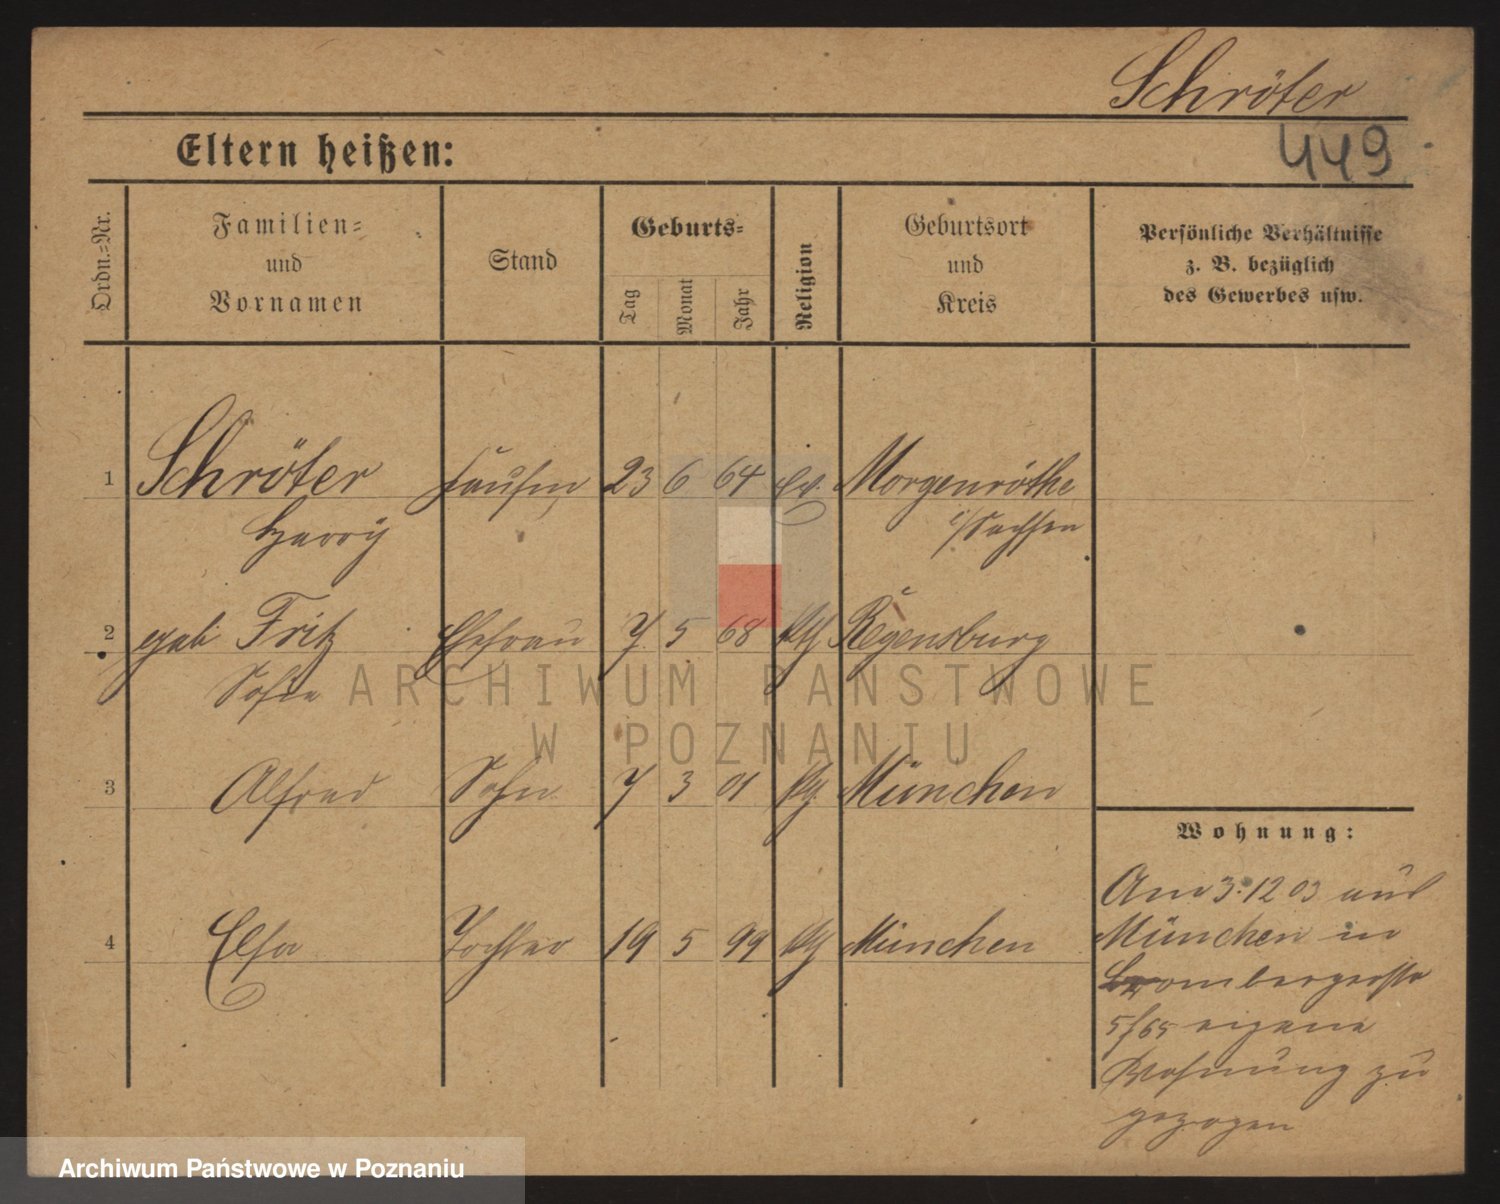 Schröter
449
Eltern heißen:
Ordn.-Nr.
Familien-
und
Vornamen
Stand
Geburts-
Tag
Monat
Jahr
Religion
Geburtsort
und
Kreis
Persönliche Verhältnisse
z. B. bezüglich
des Gewerbes usw.
1 Schröter Kaufm 23 6 64 Ev. Morgenröthe
Harry i/Sachsen
2 geb Fritz Ehefrau 7. 5 68 Kth Regensburg
Sofie
3 Alfred Sohn 7 3 01 München
4 Elsa Tochter 19 5 99 Kth München
Wohnung:
Am 3.12 03 aus
München in
Brombergerstr
5/65 eigene
Wohnung zu
gezogen
ARCHIWUM PAŃSTWOWE
W POZNANIU
Archiwum Państwowe w Poznaniu